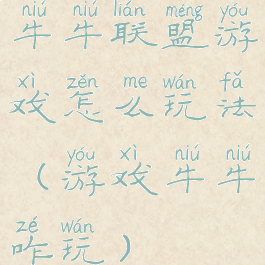 niú niú lián méng yóu
牛牛联盟游
xì zěn me wán fǎ
戏怎么玩法
yóu xì niú niú
（游戏牛牛
zé wán
咋玩）